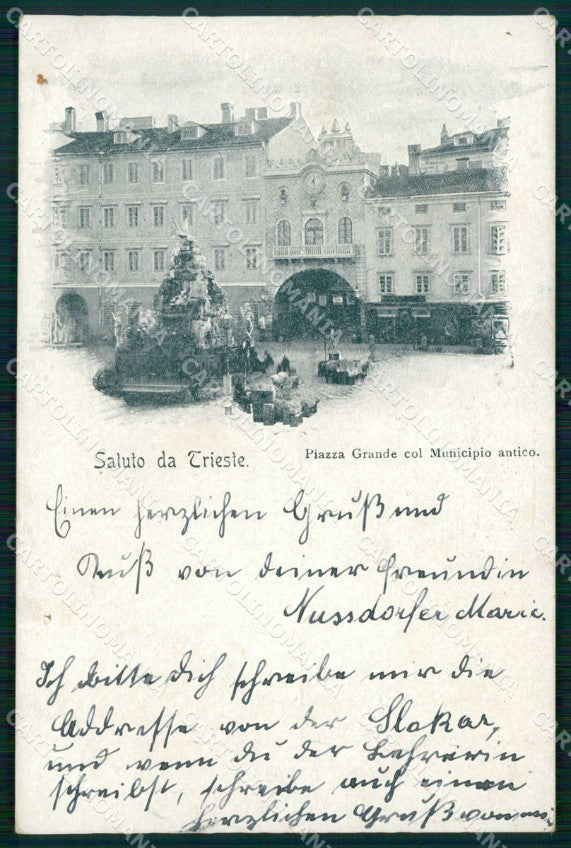 Saluto da Trieste.
Piazza Grande col Municipio antico.
Einen herzlichen Gruß und
Kuß von deiner Freundin
Nussdorfer Marie.
Ich bitte Dich schreibe mir die
Addresse von der Slokar,
und wenn du der Lehrerin
schreibst, schreibe auch einen
herzlichen Gruß von mir
CARTOLINOMANIA